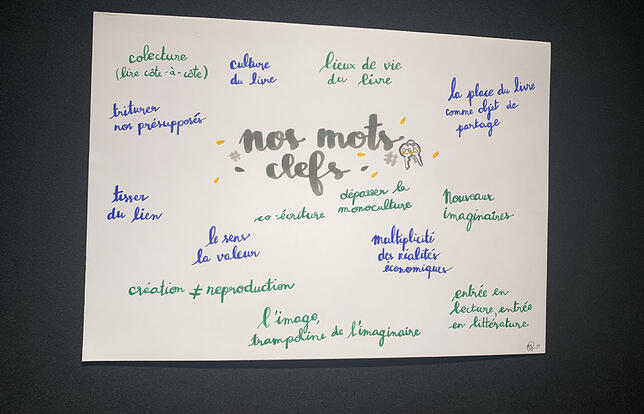 colecture
(lire côte-à-côte)
culture
du livre
lieux de vie
du livre
la place du livre
comme objet de
partage
triturer
nos présupposés
nos mots
clefs
#
#
tisser
du lien
co-écriture
dépasser la
monoculture
Nouveaux
imaginaires
le sens
la valeur
multiplicité
des réalités
économiques
création ≠ reproduction
l'image,
trampoline de l'imaginaire
entrée en
lecture, entrée
en littérature